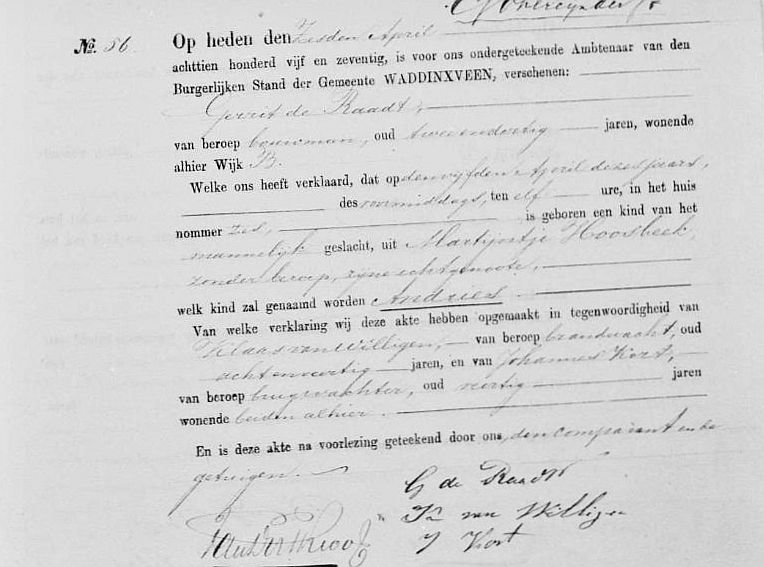 No. 56.
Op heden den Zesden April
achttien honderd vijf en zeventig, is voor ons ondergeteekende Ambtenaar van den
Burgerlijken Stand der Gemeente WADDINXVEEN, verschenen:
Gerrit de Raadt,
van beroep bouwman, oud twee en dertig jaren, wonende
alhier Wijk B.
Welke ons heeft verklaard, dat op den vijfden April dezes jaars,
des voormiddags, ten elf ure, in het huis
nommer zes, is geboren een kind van het
mannelijk geslacht, uit Martijntje Hoosbeek,
zonder beroep, zijne echtgenoote,
welk kind zal genaamd worden Andries
Van welke verklaring wij deze akte hebben opgemaakt in tegenwoordigheid van
Klaas van Willigen, van beroep brandwacht, oud
acht en veertig jaren, en van Johannes Kort,
van beroep brugwachter, oud veertig jaren
wonende beiden alhier.
En is deze akte na voorlezing geteekend door ons, den comparant en de
getuigen.
G de Raadt
K van Willigen
J Kort